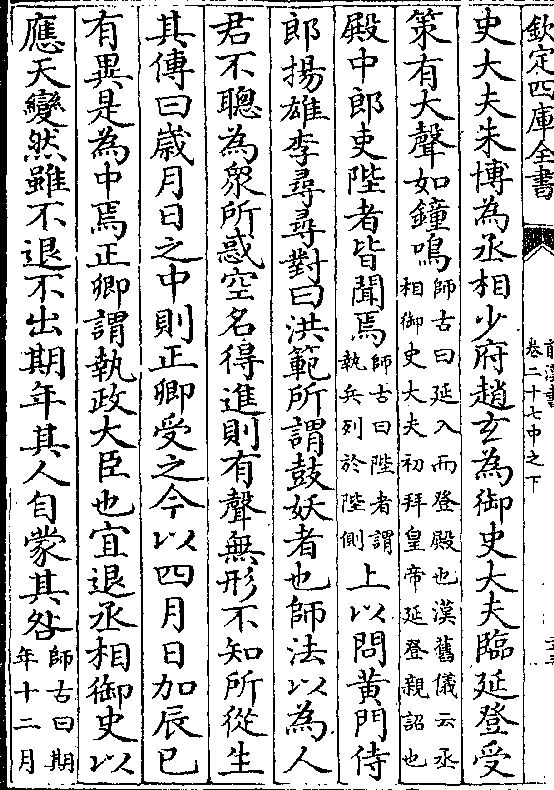 欽定四庫全書
前漢書
卷二十七中之下
史大夫朱博為丞相少府趙玄為御史大夫臨延登受
策有大聲如鐘鳴師古曰延入而登殿也漢舊儀云丞相御史大夫初拜皇帝延登親詔也
殿中郎吏陛者皆聞焉師古曰陛者謂執兵列於陛側上以問黃門侍
郎揚雄李尋尋對曰洪範所謂鼓妖者也師法以為人
君不聰為衆所惑空名得進則有聲無形不知所從生
其傳曰歲月日之中則正卿受之今以四月日加辰巳
有異是為中焉正卿謂執政大臣也宜退丞相御史以
應天變然雖不退不出期年其人自蒙其咎師古曰期年十二月